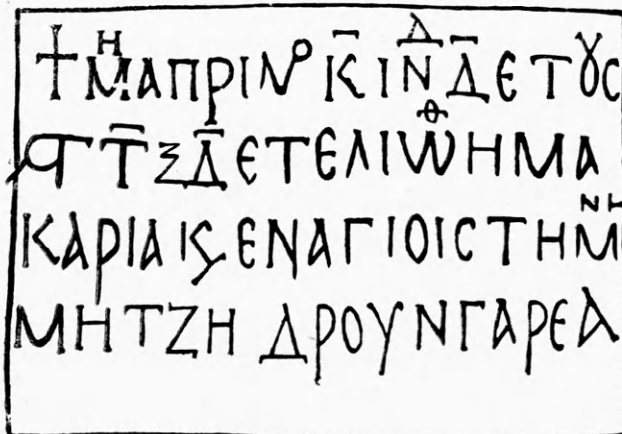 † ΜΗ ΑΠΡΙΝΟ Κ̅ ΙΝΔ Δ̅ ΕΤȢϹ
Ϛ Τ̅ Ξ Δ̅ ΕΤΕΛΙѠΘΗ ΜΑ
ΚΑΡΙΑ ΙϚ ΕΝ ΑΓΙΟΙϹ ΤΗ ΜΝΗ
ΜΗ ΤΖΗ ΔΡΟΥΝΓΑΡΕΑ